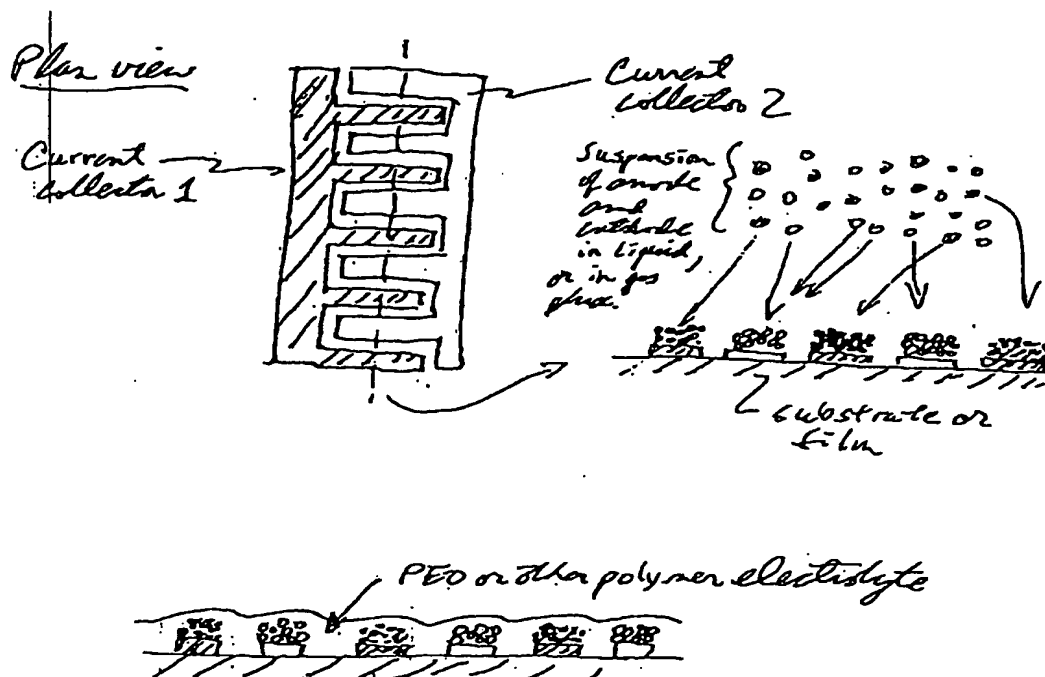 Plan view
Current
collector 2
Current
collector 1
Suspension
of anode
and
cathode
in liquid,
or in gas
substrate or
film
PEO or other polymer electrolyte